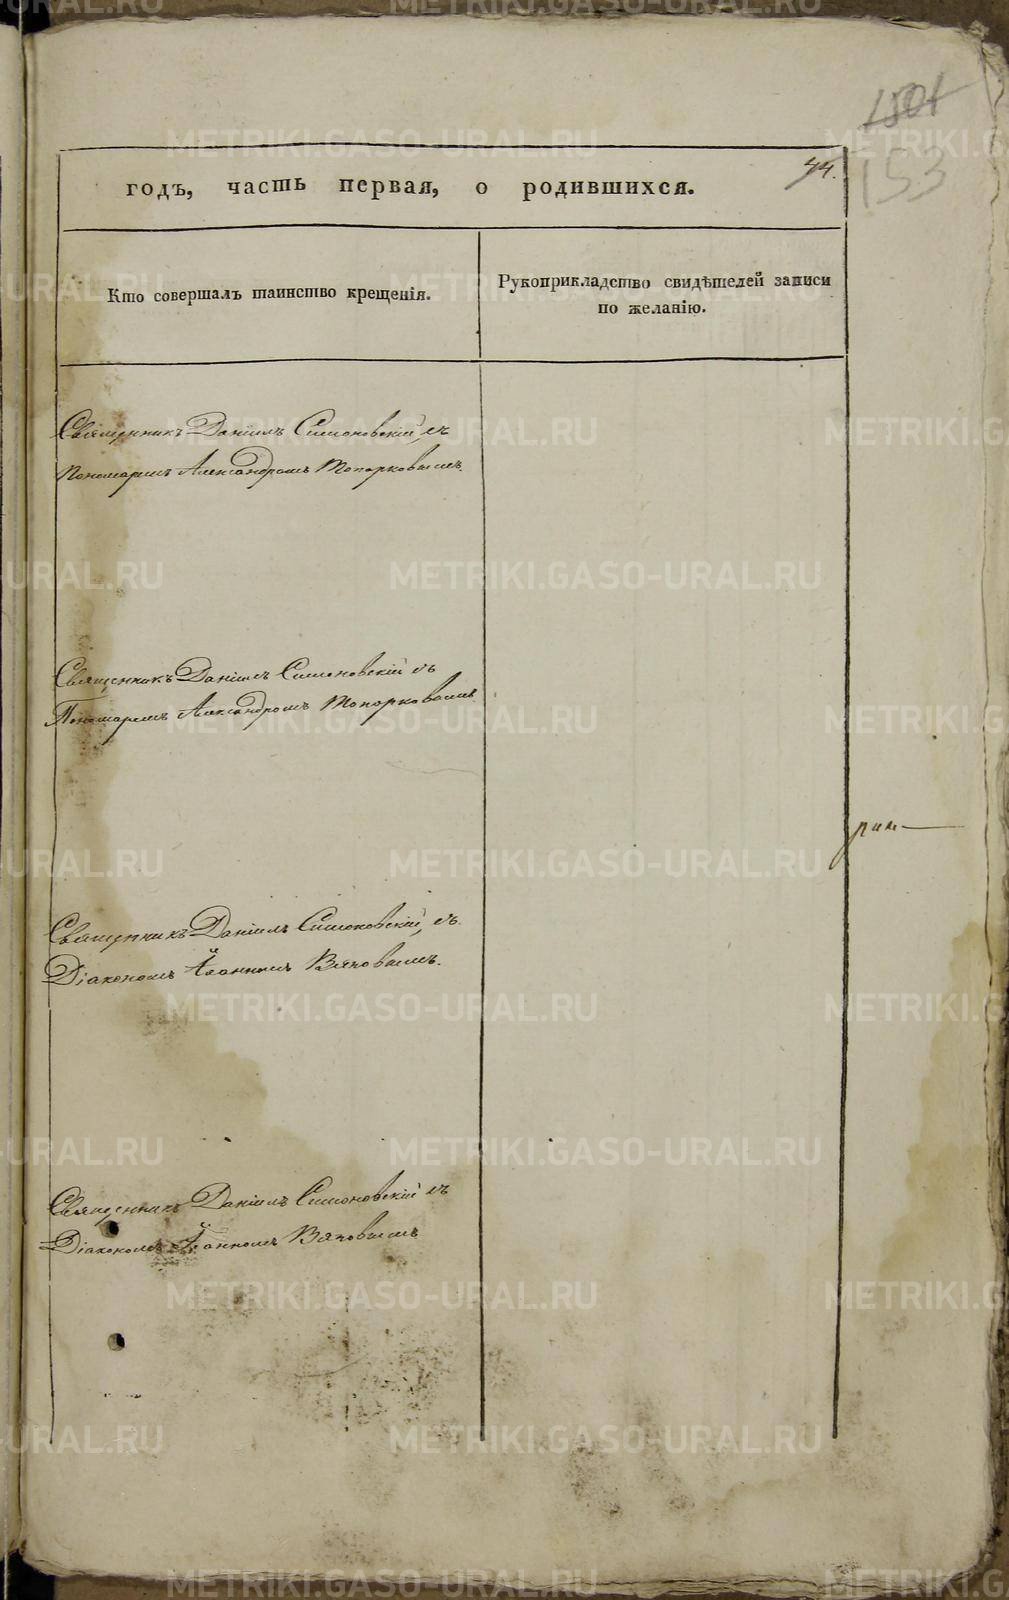 1501
153
44.
годъ, часть первая, о родившихся.
Кто совершалъ таинство крещенія.
Рукоприкладство свидѣтелей записи
по желанію.
Священникъ Даніилъ Симоновскій, съ
Пономаремъ Александромъ Топорковымъ.
Священникъ Даніилъ Симоновскій съ
Пономаремъ Александромъ Топорковымъ
Священникъ Даніилъ Симоновскій, съ
Діакономъ Іоанномъ Вяновымъ.
Священникъ Даніилъ Симоновскій съ
Діакономъ Іоанномъ Вяновымъ
METRIKI.GASO-URAL.RU